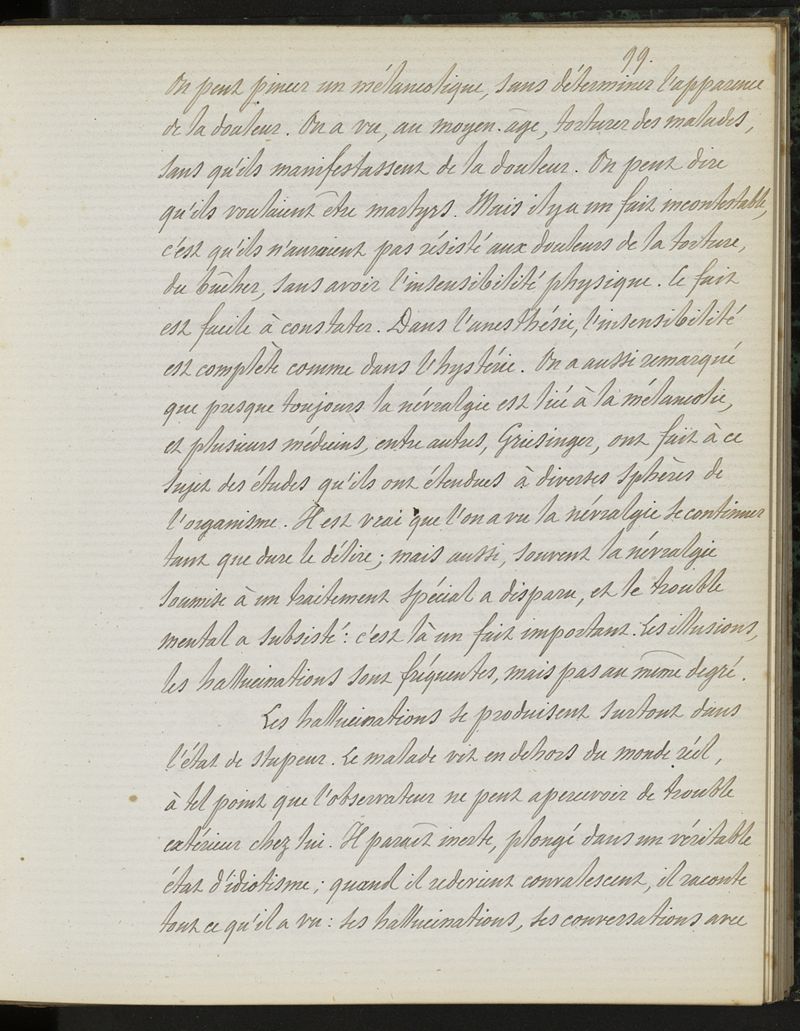 99.
On peut pincer un mélancolique, sans déterminer l'apparence
de la douleur. On a vu, au moyen-âge, torturer des malades,
sans qu'ils manifestassent de la douleur. On peut dire
qu'ils voulaient être martyrs. Mais il y a un fait incontestable,
c'est qu'ils n'auraient pas résisté aux douleurs de la torture,
du bûcher, sans avoir l'insensibilité physique. Ce fait
est facile à constater. Dans l'anesthésie, l'insensibilité
est complète comme dans l'hystérie. On a aussi remarqué
que presque toujours la névralgie est liée à la mélancolie,
et plusieurs médecins, entre autres, Griesinger, ont fait à ce
sujet des études qu'ils ont étendues à diverses sphères de
l'organisme. Il est vrai que l'on a vu la névralgie se continuer
tant que dure le délire ; mais aussi, souvent la névralgie
soumise à un traitement spécial a disparu, et le trouble
mental a subsisté : c'est là un fait important. Les illusions,
les hallucinations sont fréquentes, mais pas au même degré.
Les hallucinations se produisent surtout dans
l'état de stupeur. Le malade vit en dehors du monde réel,
à tel point que l'observateur ne peut apercevoir de trouble
extérieur chez lui. Il paraît inerte, plongé dans un véritable
état d'idiotisme ; quand il redevient convalescent, il raconte
tout ce qu'il a vu : ses hallucinations, ses conversations avec